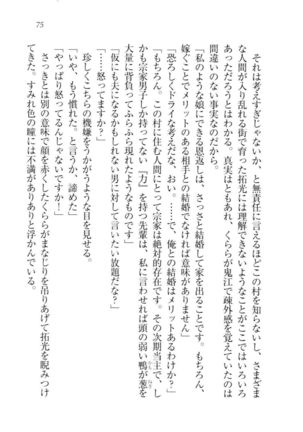 75
それは考えすぎじゃないか、と無責任に言えるほどこの村を知らないし、さまざま
な人間が入り乱れる街で育った拓光には理解できないようなことがここではいろいろ
あっただろうとはわかる。真実はともあれ、くららが鬼江で疎外感を覚えていたのは
間違いのない事実なのだから。
「私のような娘にできる恩返しは、さっさと結婚して家を出ることです。もちろん、
嫁ぐことでメリットのある相手との結婚でなければ意味がありません」
「恐ろしくドライな考えだな、おい。……で、俺との結婚はメリットあるわけか？」
「もちろん。この村に住む人間にとって宗家は絶対的存在です。その次期当主で、し
かも宗家男子しか持ってない『力』を持つ先輩は、私に言わせれば頭の弱い鴨が葱を
大量に背負ってふらふら現れたようなものです」
「仮にも夫になるかもしれない男に対して言いたい放題だな？」
「……怒ってますか？」
珍しくこちらの機嫌をうかがうような目を見せる。
「いや、もう慣れた。と言うか、諦めた」
「やっぱり怒ってるんじゃないですか！」
さっきとは別の意味で顔を赤くしたくららがまなじりを吊りあげて拓光を睨みつけ
てきた。すみれ色の瞳には不満がありありと浮かんでいる。